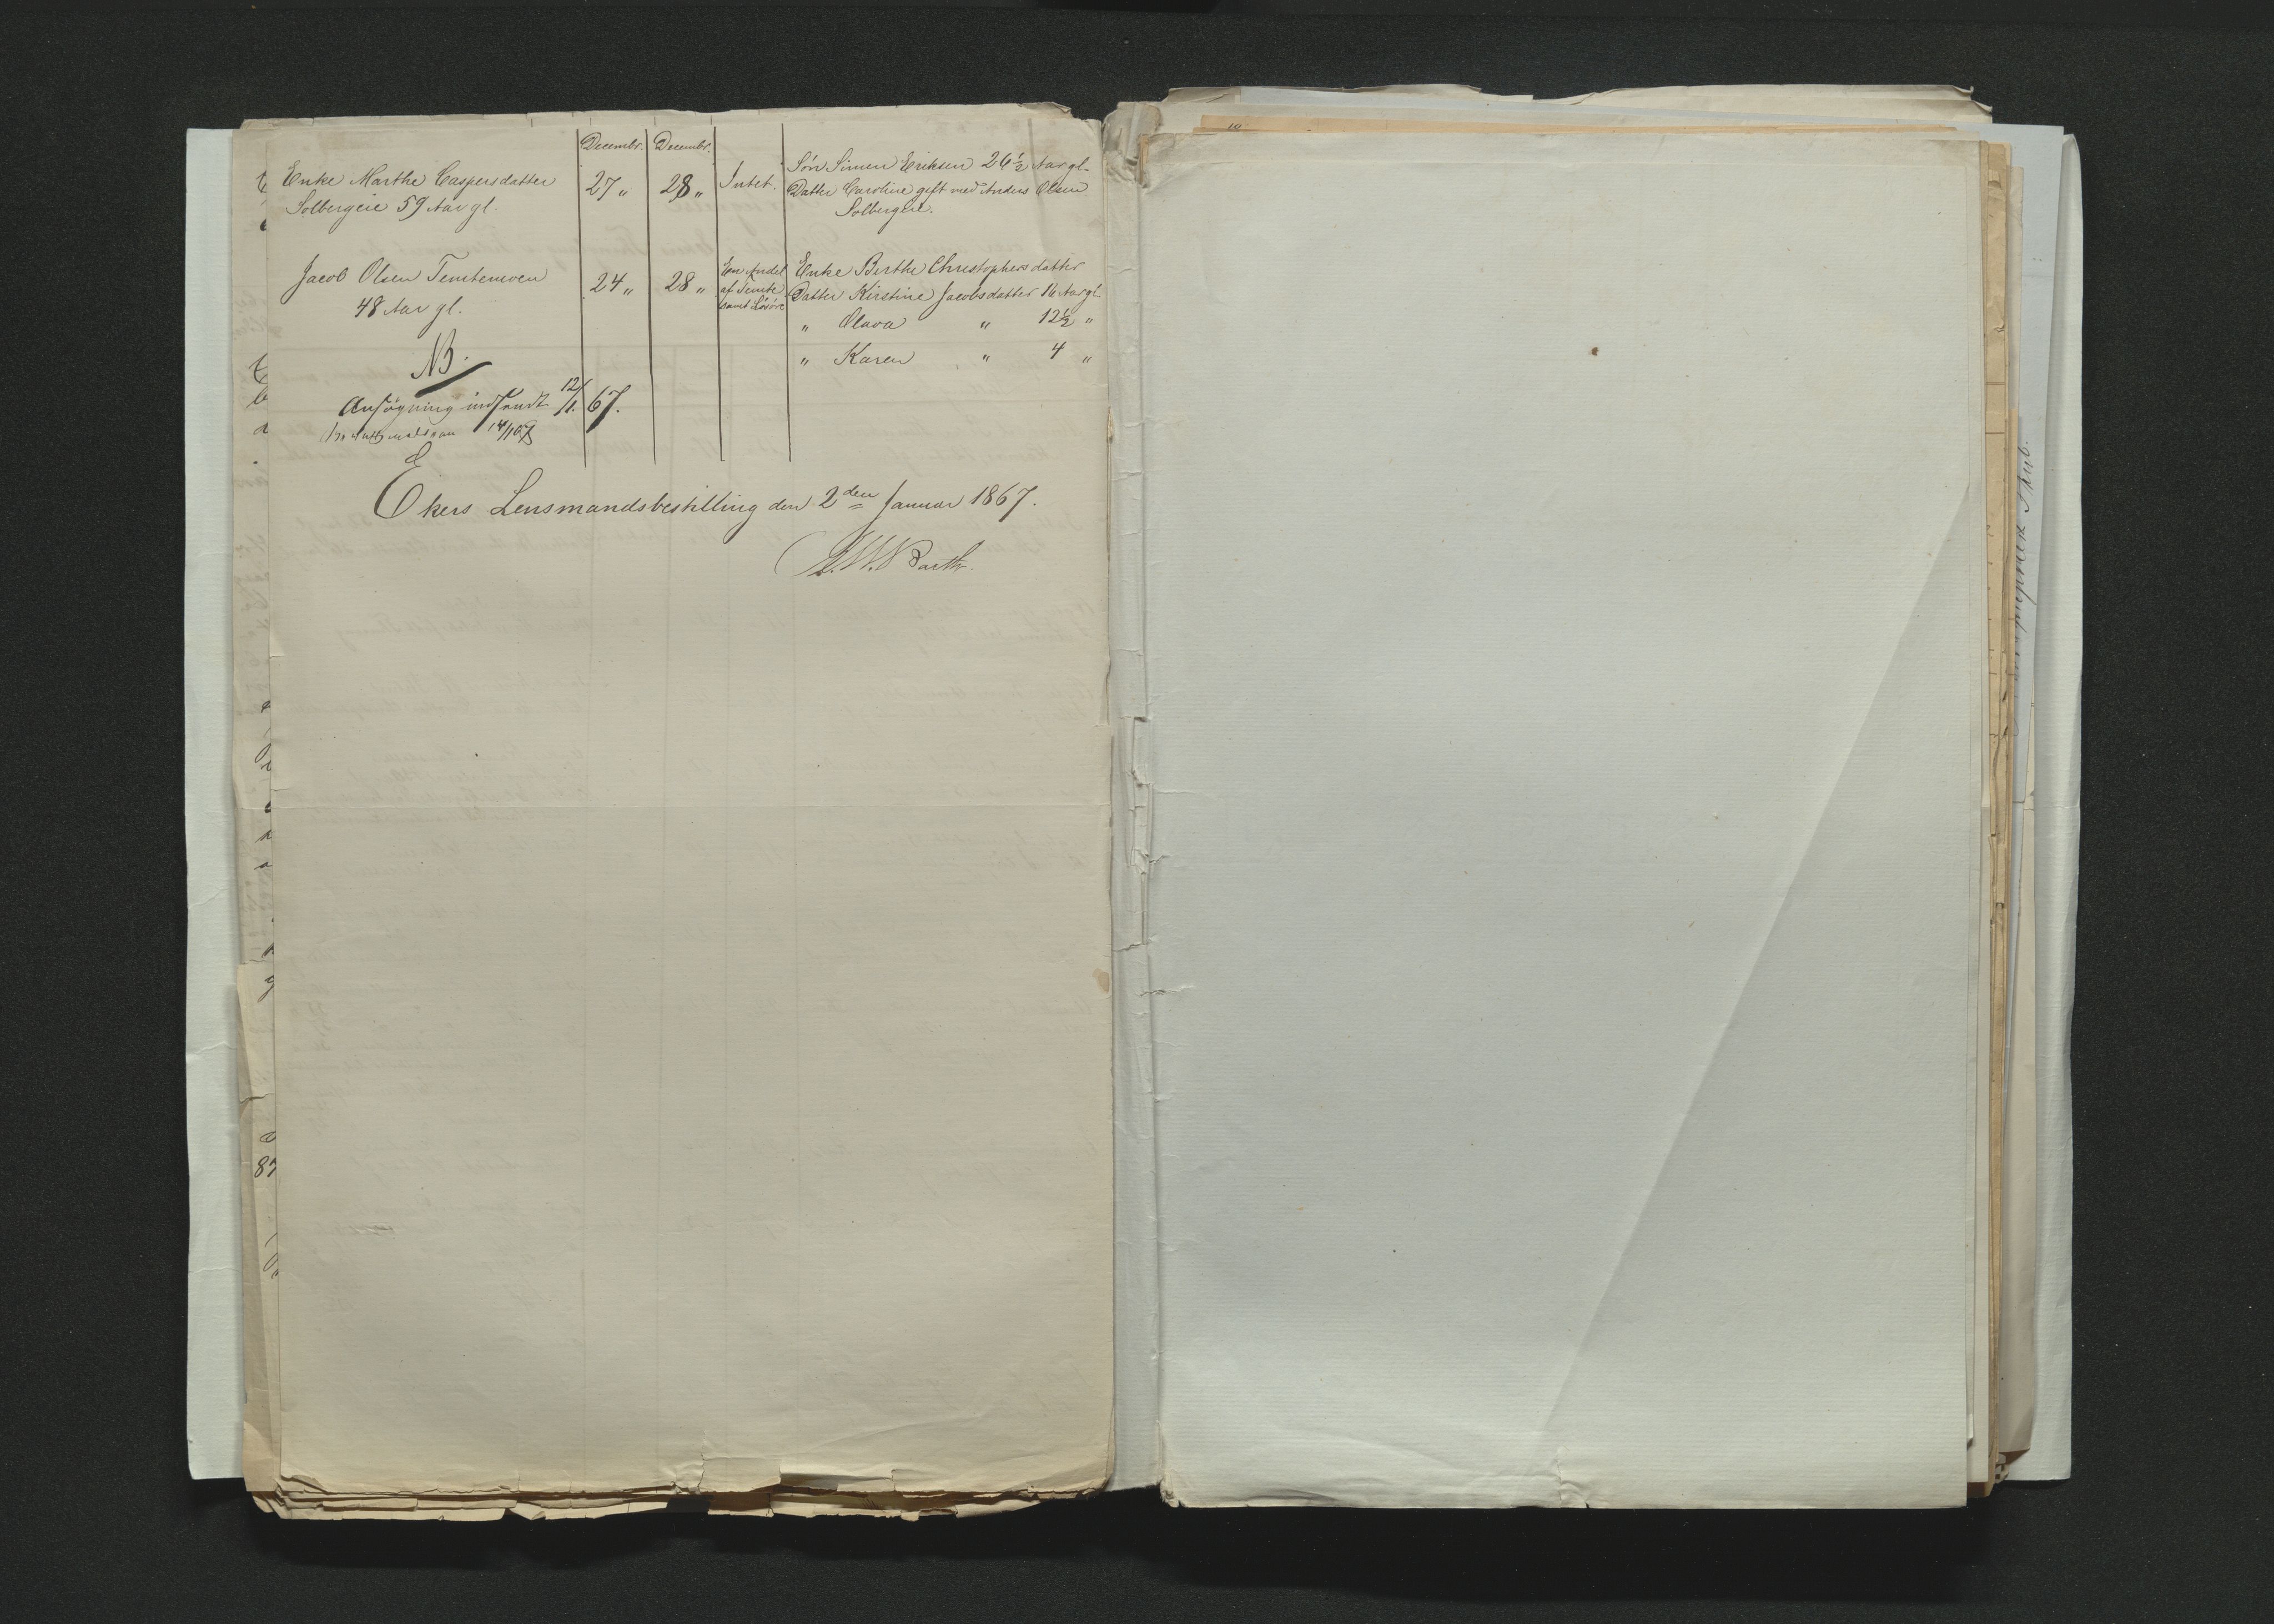 Decembr. Decembr.
Enke Marthe Caspersdatter 27 „ 28 „ Intet. Søn Simen Eriksen 26½ Aar gl.
Solbergeie 59 Aar gl. Datter Caroline gift med Anders Olsen
Solbergeie.
Jacob Olsen Temtemoen 24 „ 28 „ En Andel Enke Berthe Christophersdatter
48 Aar gl. af Temte Datter Kirstine Jacobsdatter 16 Aar gl.
samt Løsøre „ Olava „ 12½ „
„ Karen „ 4 „
NB.
Ansøgning indsendt 12/1. 67.
14/1 67
Ekers Lensmandsbestilling den 2den Januar 1867.
Barth.
87